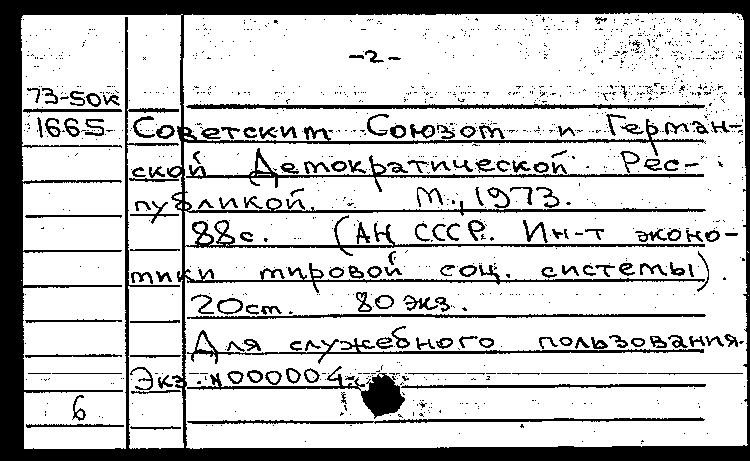 -2-
73-50к
1665 Советским Союзом и Герман-
ской Демократической Рес-
публикой. М., 1973.
88с. (АН СССР. Ин-т эконо-
мики мировой соц. системы).
20см. 80 экз.
Для служебного пользования.
Экз. №000004.
6